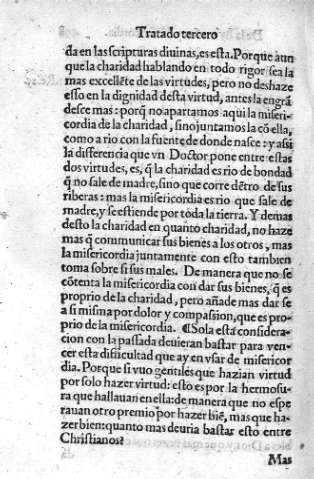 Tratado tercero
da en las scripturas diuinas, es esta. Porque aun
que la charidad hablando en todo rigor sea la
mas excellẽte de las virtudes, pero no deshaze
esso en la dignidad desta virtud, antes la engrã
desce mas: porq̃ no apartamos aqui la miseri-
cordia de la charidad, sino juntamos la cõ ella,
como a rio con la fuente de donde nasce: y assi
la differencia que vn Doctor pone entre estas
dos virtudes, es, q̃ la charidad es rio de bondad
q̃ no sale de madre, sino que corre dẽtro de sus
riberas: mas la misericordia es rio que sale de
madre, y se estiende por toda la tierra. Y demas
desto la charidad en quanto charidad, no haze
mas q̃ communicar sus bienes a los otros, mas
la misericordia juntamente con esto tambien
toma sobre si sus males. De manera que no se
cõtenta la misericordia con dar sus bienes, q̃ es
proprio de la charidad, pero añade mas dar se
a si misma por dolor y compassion, que es pro-
prio de la misericordia. ¶Sola esta considera-
cion con la passada deuieran bastar para ven-
cer esta difficultad que ay en vsar de misericor
dia. Porque si vuo gentiles que hazian virtud
por solo hazer virtud: esto es por la hermosu-
ra que hallauan en ella: de manera que no espe
rauan otro premio por hazer biẽ, mas que ha-
zer bien: quanto mas deuria bastar esto entre
Christianos?
Mas